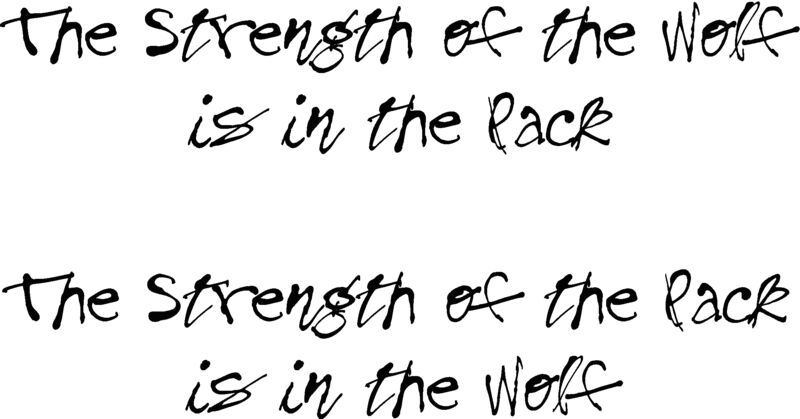 The Strength of the Wolf
is in the Pack
The Strength of the Pack
is in the Wolf